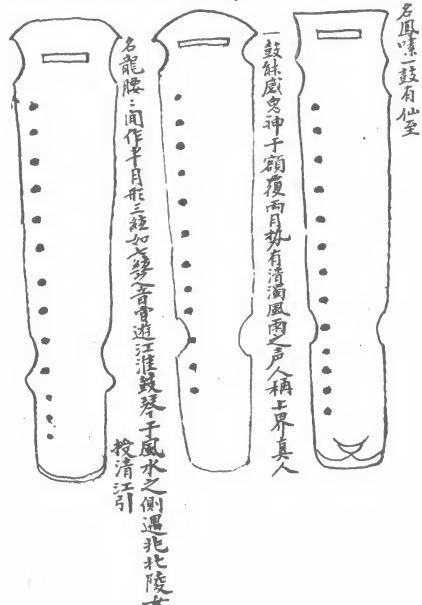 名鳳嗉一鼓有仙至
一鼓能感鬼神于額覆兩月勢有清濁風雨之声人稱上界真人
名龍腰〻間作半月形三絃如七絃之音曾遊江淮鼓琴于風水之側遇兆北陵女
授清江引